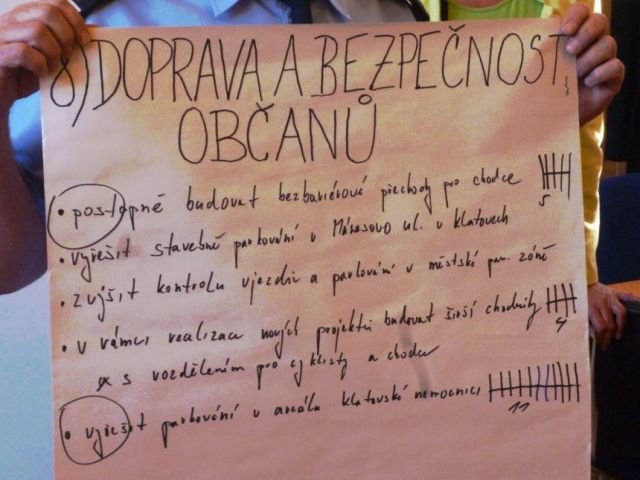 8) DOPRAVA A BEZPEČNOST
OBČANŮ
• postupně budovat bezbariérové přechody pro chodce
5
• vyřešit stavebně parkování v Mánesovo ul. v Klatovech
• zvýšit kontrolu vjezdu a parkování v městské pam. zóně
• v rámci realizace nových projektů budovat širší chodníky
4
s rozdělením pro cyklisty a chodce
• vyřešit parkování v areálu klatovské nemocnici
11